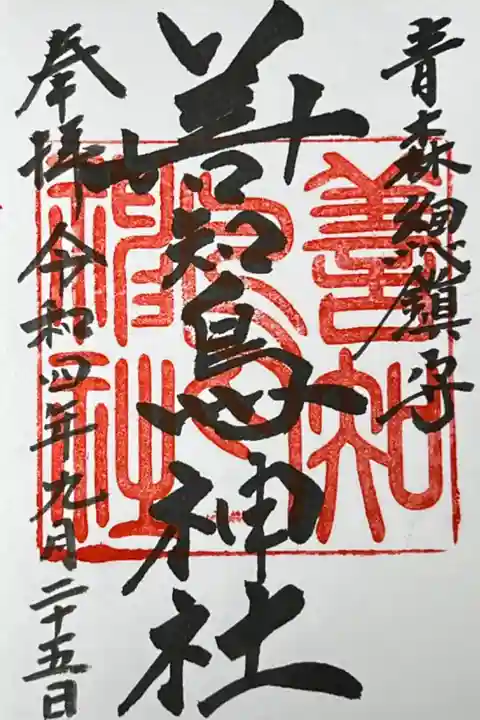 青森総鎮守
善知鳥神社
奉拝 令和四年九月二十五日
善知
神社